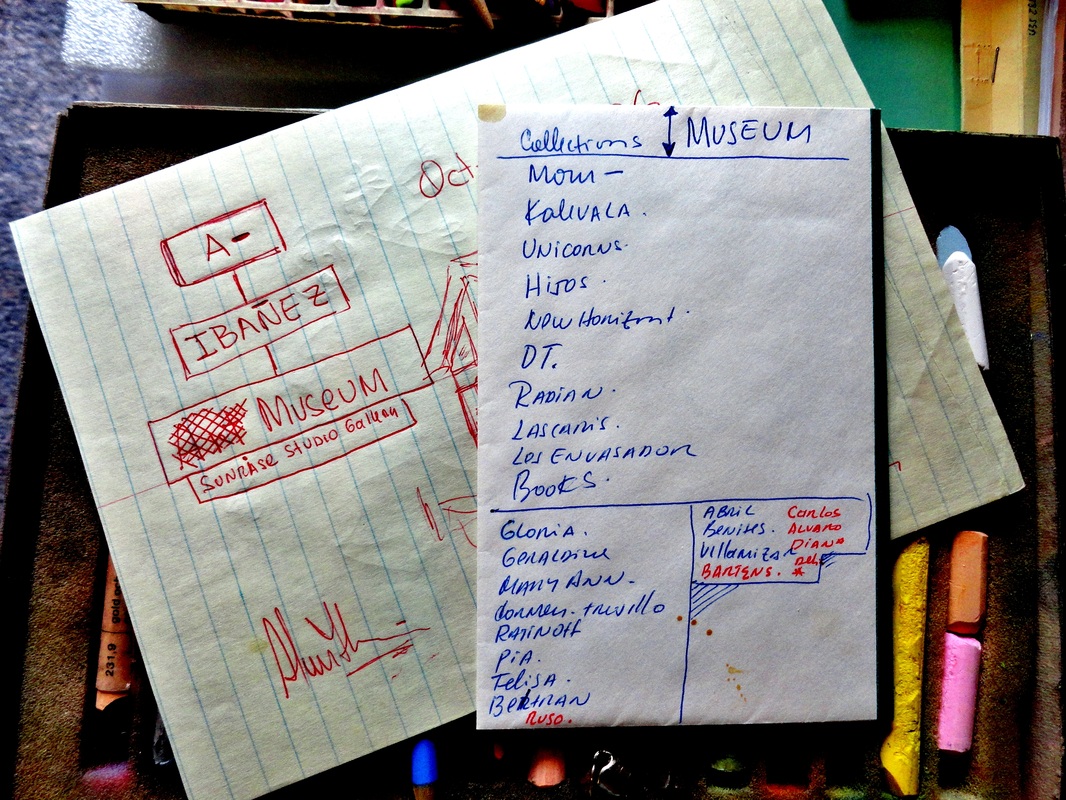 Oct
A-
IBAÑEZ
MUSEUM
SUNRISE STUDIO Gallery
Collections ↕ MUSEUM
Mom -
KaleVALA.
UNICORNS.
HIJOS.
New Horizont.
DT.
RADIAN.
LASCARIS.
LOS ENVASADOR
BOOKS.
GLORIA.
GERALDINE
MARY ANN.
Carmen. Trevillo
RATINOFF
PIA.
FelisA.
BERTRAN
RUSO.
ABRIL Carlos
Benites. ALVARO
Villamizar DIANA
BARTENS. *
231,9
gold